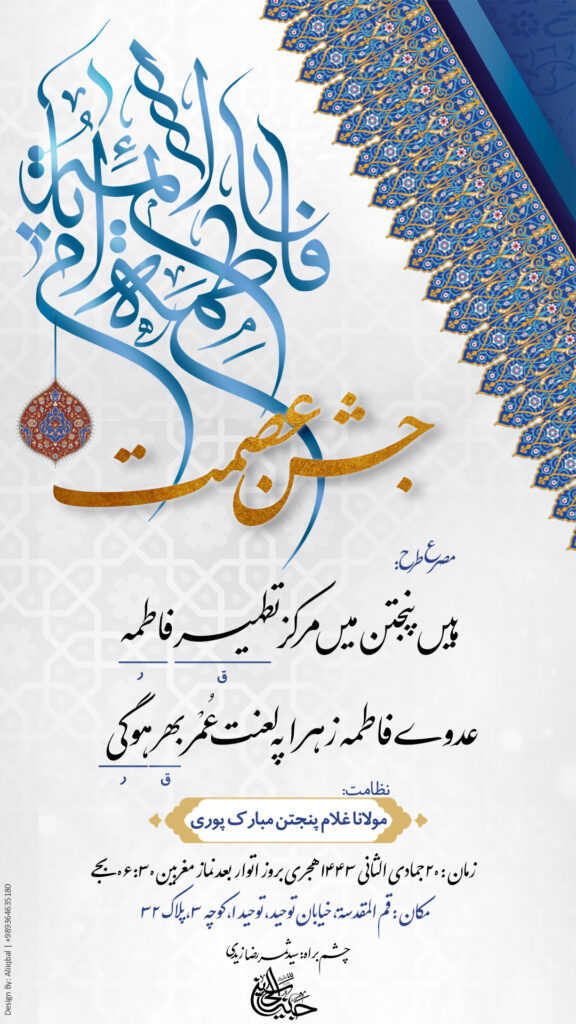 فاطمة
جشن عصمت
مصرع طرح:
ہیں پنجتن میں مرکز تطہیر فاطمہ
ق
ر
عدوے فاطمہ زہرا پہ لعنت عُمْر بھر ہوگی
ق
ر
نظامت:
مولانا غلام پنجتن مبارک پوری
زمان: ۲۰ جمادی الثانی ۱۴۴۳ ھجری بروز اتوار بعد نماز مغربین ۰۶:۳۰ بجے
مکان: قم المقدسۃ، خیابان توحید، توحید ۱، کوچہ ۳، پلاک ۳۲
چشم براہ: سید ثمر رضا زیدی
Design By: Aliiqbal | +989364635180